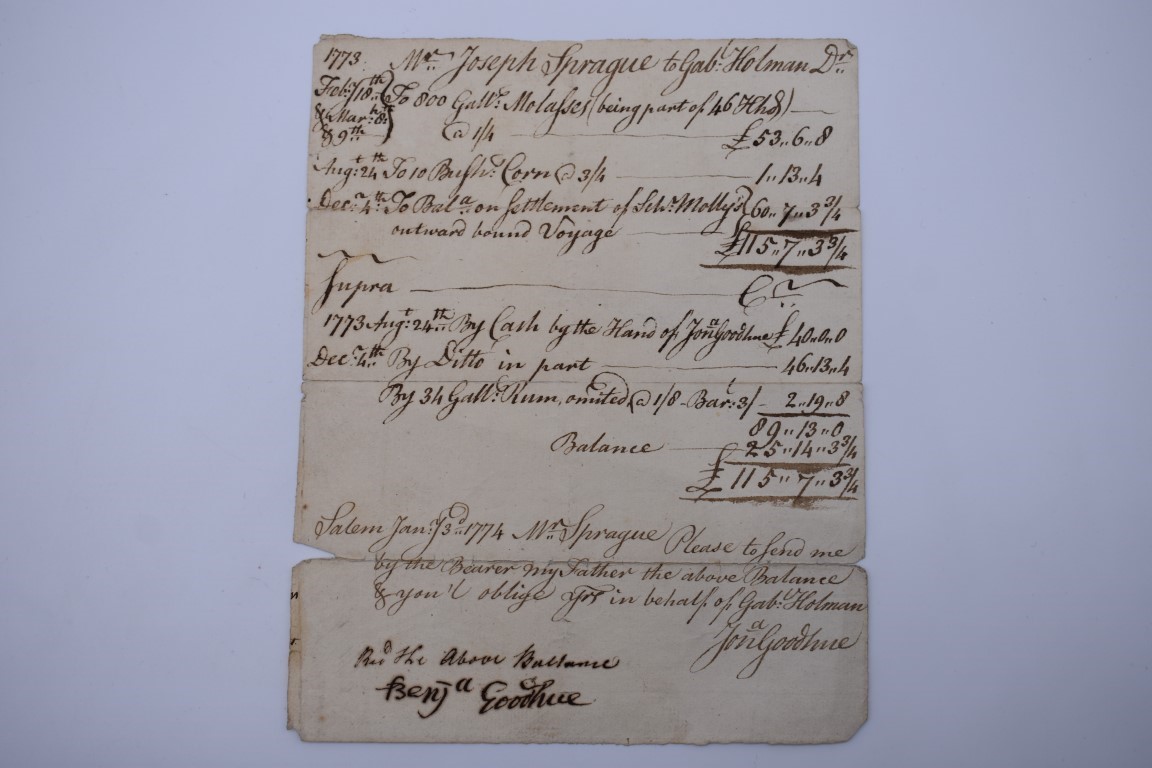 1773. Mr. Joseph Sprague to Gabl. Holman Dr.
Feby. 18th To 800 Galls. Molasses (being part of 46 Hhds)
& Mar. 8th
& 9th @ 1/4 £53,,6,,8
Augt. 24th To 10 Bushs. Corn @ 3/4 1,,13,,4
Decr. 4th To Bala. on Settlement of Schr. Molly's 60,,7,,3 3/4
outward bound Voyage £115,,7,,3 3/4
Supra Cr.
1773 Augt. 24th By Cash by the Hand of Jona. Goodhue £40,,0,,0
Decr. 4th By Ditto in part 46,,13,,4
By 34 Galls. Rum, omited @ 1/8 - Barl. 3/- 2,,19,,8
89,,13,,0
Balance 25,,14,,3 3/4
£115,,7,,3 3/4
Salem Jany. 3d. 1774 Mr. Sprague Please to send me
by the Bearer my Father the above Balance
& you'l oblige Yrs in behalf of Gabl. Holman
Jona. Goodhue
Recd the Above Ballance
Benja Goodhue